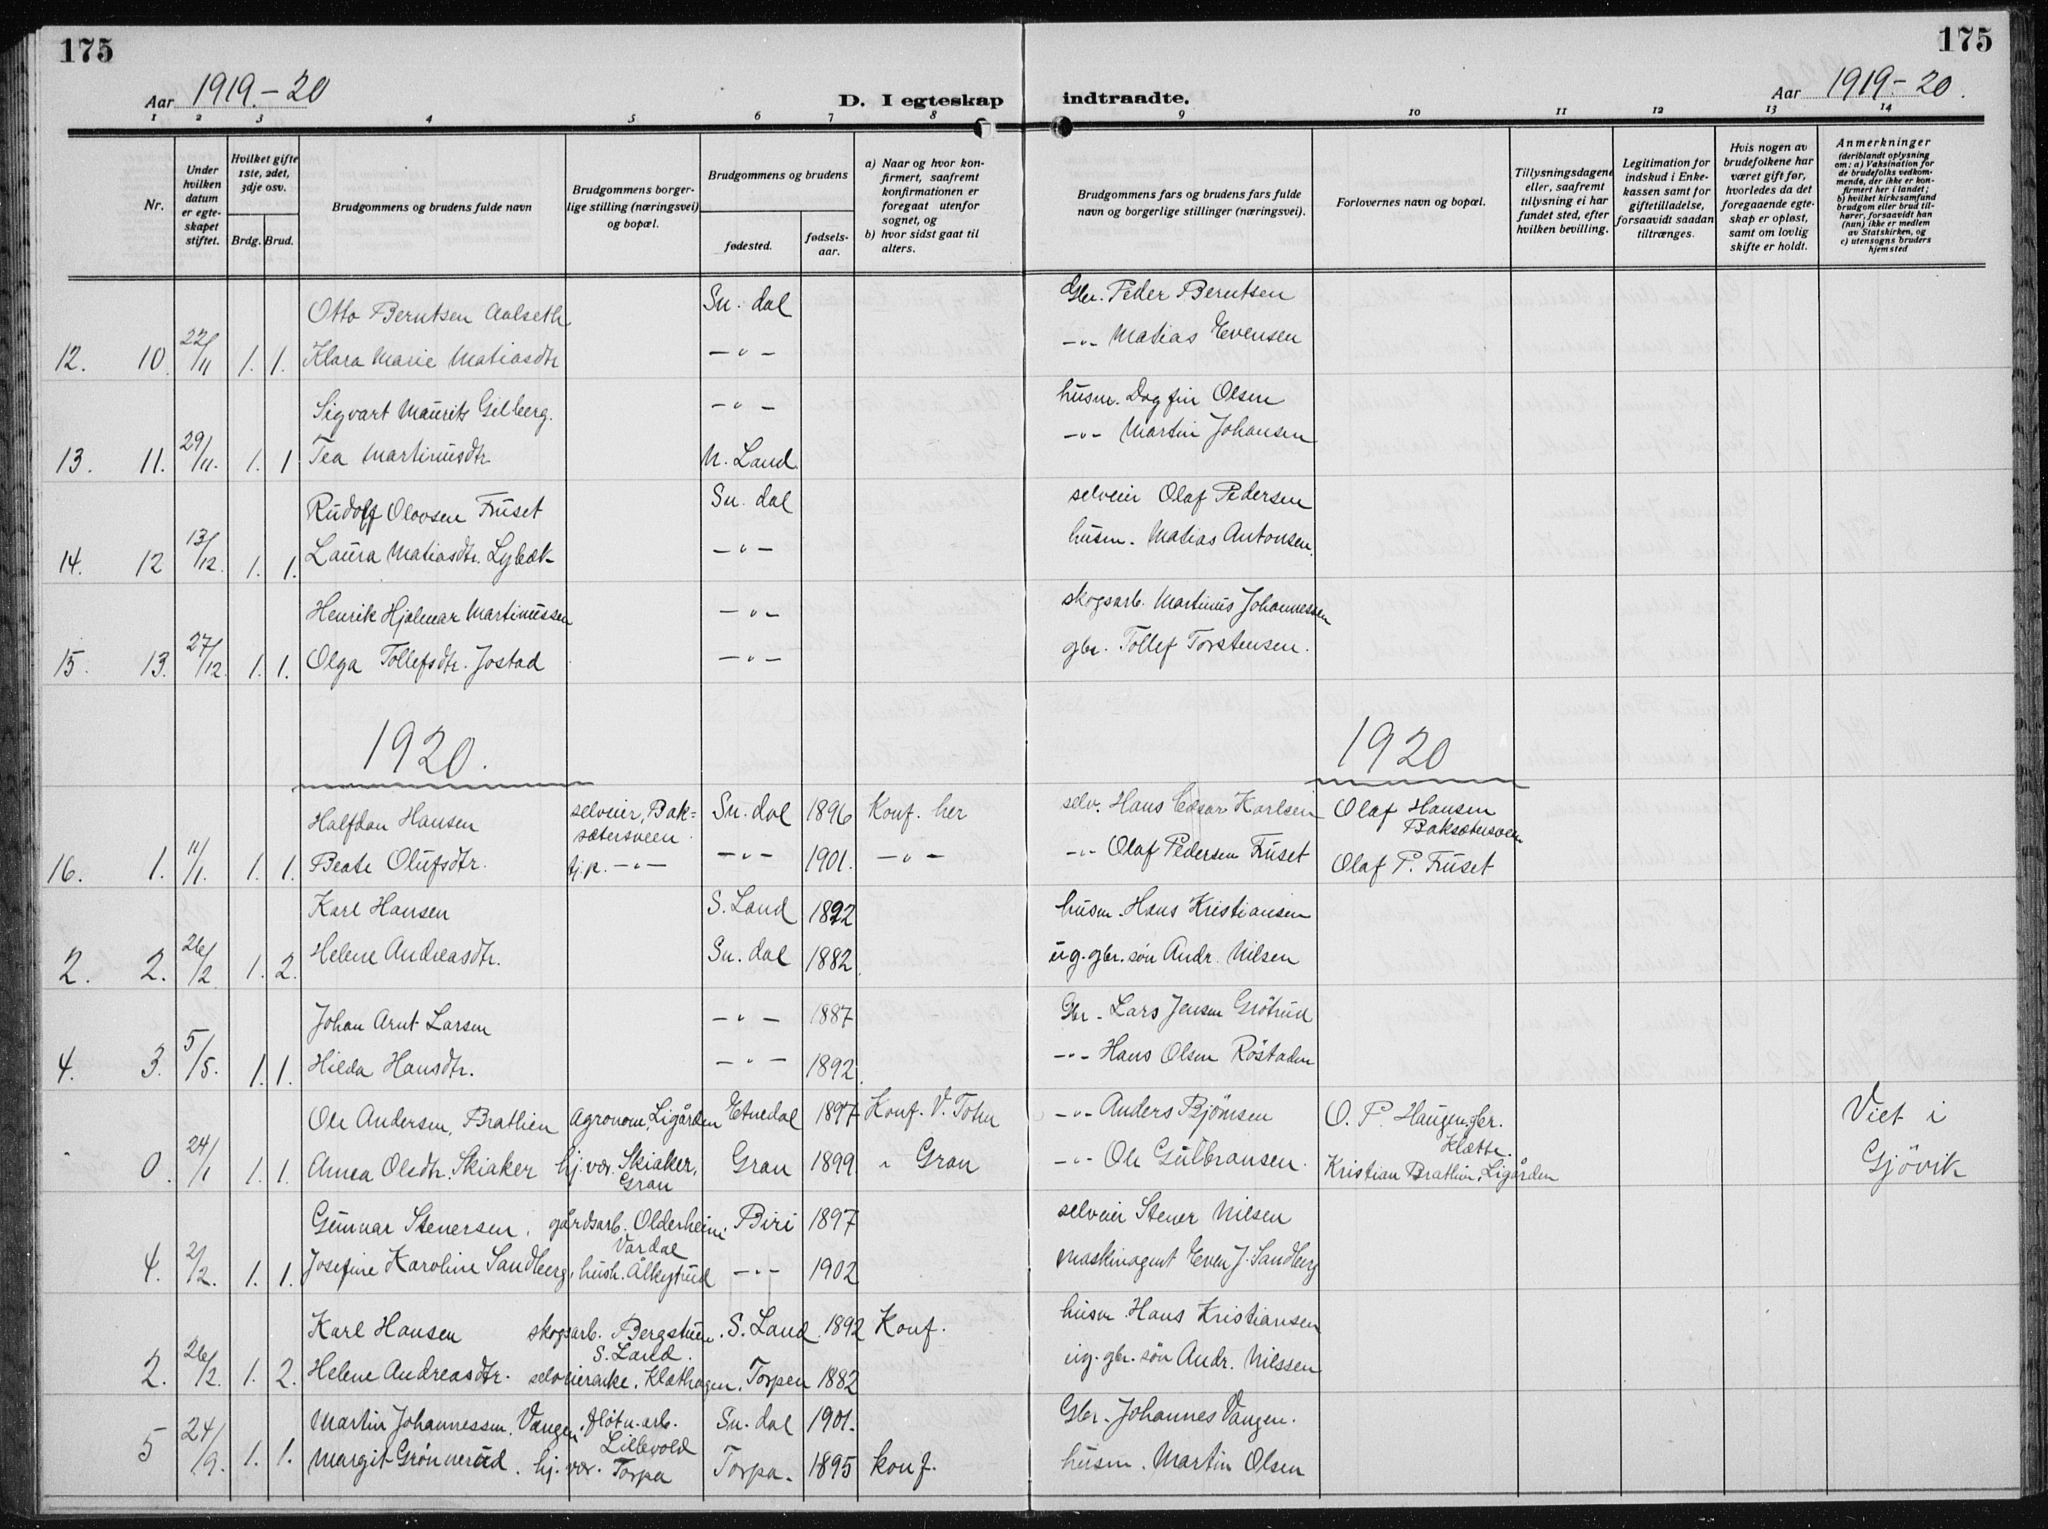 175
175
Aar 1919.-20
D. I egteskap indtraadte.
Aar 1919-20.
1 2 3 4 5 6 7 8 9 10 11 12 13 14
Nr.
Under hvilken datum er egteskapet stiftet.
Hvilket gifte 1ste, 2det, 3dje osv.
Brdg. Brud.
Brudgommens og brudens fulde navn
Brudgommens borgerlige stilling (næringsvei) og bopæl.
Brudgommens og brudens
fødested.
fødselsaar.
a) Naar og hvor konfirmert, saafremt konfirmationen er foregaat utenfor sognet, og
b) hvor sidst gaat til alters.
Brudgommens fars og brudens fars fulde navn og borgerlige stillinger (næringsvei).
Forlovernes navn og bopæl.
Tillysningsdagene eller, saafremt tillysning ei har fundet sted, efter hvilken bevilling.
Legitimation for indskud i Enkekassen samt for giftetilladelse, forsaavidt saadan tiltrænges.
Hvis nogen av brudefolkene har været gift før, hvorledes da det foregaaende egteskap er opløst, samt om lovlig skifte er holdt.
Anmerkninger
(deriblandt oplysning om: a) Vaksination for de brudefolks vedkommende, der ikke er konfirmert her i landet; b) hvilket kirkesamfund brudgom eller brud tilhører, forsaavidt han (hun) ikke er medlem av Statskirken, og c) utensogns bruders hjemsted
Otto Berntsen Aalseth Sn. dal Gbr. Peder Berntsen
12. 10 22/11 1. 1. Klara Marie Matiasdtr —"— —"— Matias Evensen
Sigvart Maurits Gilberg. —"— husm. Dagfin Olsen
13. 11. 29/11. 1. 1 Tea Martinusdtr. N. Land —"— Martin Johansen
Rudolf Olavsen Fruset Sn. dal selveier Olaf Pedersen
14. 12 13/12. 1. 1. Laura Matiasdtr. Lybæk —"— husm. Matias Antonsen.
Henrik Hjalmar Martinussen —"— skogsarb. Martinus Johannessen
15. 13. 27/12. 1. 1. Olga Tollefsdtr. Jostad —"— gbr. Tollef Torstensen.
1920. 1920
Halfdan Hansen selveier, Baksætersveen Sn. dal 1896 Konf. her selv. Hans Edvar Karlsen Olaf Hansen Baksætersveen
16. 1. 11/1. 1. 1. Beate Olufsdtr. tj.p. —"— —"— 1901. —"— —"— Olaf Pedersen Fruset Olaf P. Fruset
Karl Hansen S. Land 1892 husm. Hans Kristiansen
2. 2. 26/2 1. 2. Helene Andreasdtr. Sn. dal 1882 ug. gbr. søn Andr. Nilsen
Johan Arnt Larsen —"— 1887 Gbr. Lars Jensen Grötrud
4. 3. 5/5. 1. 1. Hilda Hansdtr. —"— 1892. —"— Hans Olsen Röstaden
Ole Andersen, Brathien Agronom, Ligården Etnedal 1897 Konf. V. Toten —"— Anders Björnsen O. P. Haugen, gbr. Klætte. Viet i
0. 24/1 1. 1. Anna Olsdtr. Skiaker hj. vær. Skiaker, Gran Gran 1899. " Gran —"— Ole Gulbransen. Kristian Brathien, Ligården Gjövik
Gunnar Stenersen, gårdsarb. Olderheim, Vardal Biri 1897 selveier Stener Nilsen
4. 2/2. 1. 1. Josefine Karoline Sandberg, hush. —"— 1902 maskinagent Even J. Sandberg
Karl Hansen skogsarb. S. Land. S. Land 1892 Konf. husm Hans Kristiansen
2. 26/2. 1. 2. Helene Andreasdtr. selveierenke, Klæthagen, Torpen 1882 ug. gbr. søn Andr. Nilssen
Martin Johannessen Vangen, flötn. arb. Lillevold Sn. dal 1901. Gbr. Johannes Vangen.
5 24/9. 1. 1. Margit Grönnerud. hj. vær. Torpa Torpa. 1895 konf. husm. Martin Olsen